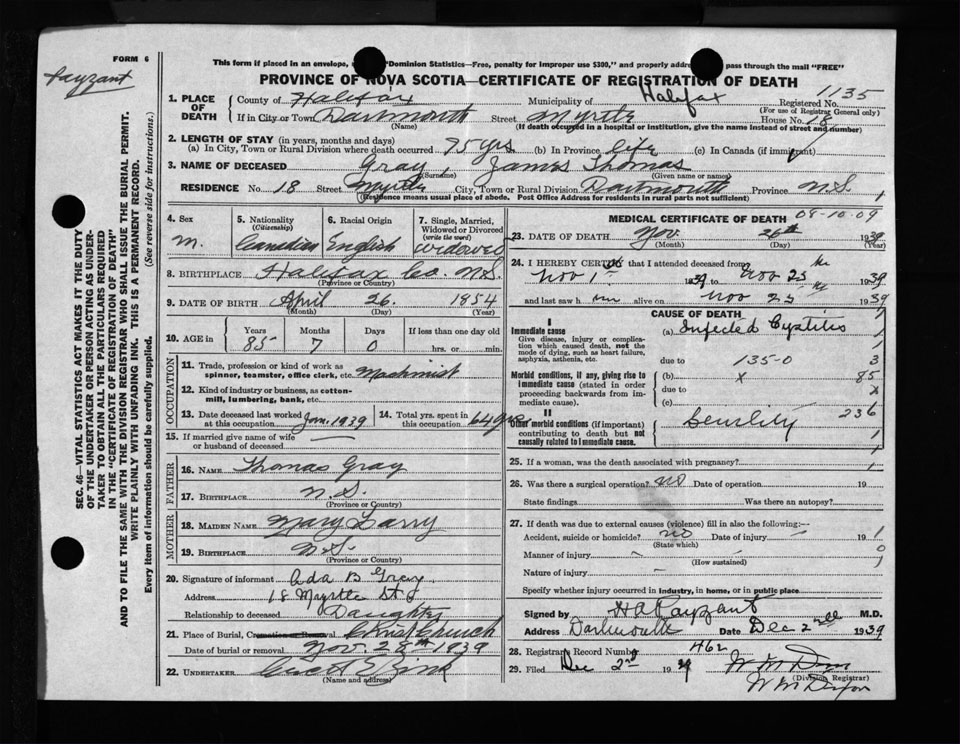 FORM 6
Payzant
This form if placed in an envelope, "Dominion Statistics—Free, penalty for improper use $300," and properly addre pass through the mail "FREE"
PROVINCE OF NOVA SCOTIA—CERTIFICATE OF REGISTRATION OF DEATH
1135
1. PLACE OF DEATH
County of Halifax Municipality of Halifax Registered No.
(For use of Registrar General only)
If in City or Town Dartmouth Street Myrtle House No. 18
(Name) (If death occurred in a hospital or institution, give the name instead of street and number)
2. LENGTH OF STAY (in years, months and days)
(a) In City, Town or Rural Division where death occurred 75 yrs (b) In Province life (c) In Canada (if immigrant)
3. NAME OF DECEASED Gray, James Thomas
(Surname) (Given name or names)
RESIDENCE No. 18 Street Myrtle City, Town or Rural Division Dartmouth Province N.S.
(Residence means usual place of abode. Post Office Address for residents in rural parts not sufficient)
4. Sex
M.
5. Nationality
(Citizenship)
Canadian
6. Racial Origin
English
7. Single, Married, Widowed or Divorced
(write the word)
Widowed
8. BIRTHPLACE Halifax Co. N.S.
(Province or Country)
9. DATE OF BIRTH April 26. 1854
(Month) (Day) (Year)
10. AGE in
Years Months Days If less than one day old
85 7 0 hrs. or min.
OCCUPATION
11. Trade, profession or kind of work as
spinner, teamster, office clerk, etc. Machinist
12. Kind of industry or business, as cotton-
mill, lumbering, bank, etc.
13. Date deceased last worked
at this occupation Jan. 1939
14. Total yrs. spent in
this occupation 64 yrs
15. If married give name of wife
or husband of deceased
FATHER
16. NAME Thomas Gray
17. BIRTHPLACE N.S.
(Province or Country)
MOTHER
18. MAIDEN NAME Mary
19. BIRTHPLACE N.S.
(Province or Country)
20. Signature of informant Ada B Gray
Address 18 Myrtle St
Relationship to deceased Daughter
21. Place of Burial, Cremation or Removal Christ Church
Date of burial or removal Nov. 28th 1939
22. UNDERTAKER Zink
(Name and address)
MEDICAL CERTIFICATE OF DEATH
09-10-09
23. DATE OF DEATH Nov. 26th 1939
(Month) (Day) (Year)
24. I HEREBY CERTIFY that I attended deceased from
Nov 1st 1939 to Nov 25 the 1939
and last saw him alive on Nov 25 the 1939
CAUSE OF DEATH
I
Immediate cause
Give disease, injury or complica-
tion which caused death, not the
mode of dying, such as heart failure,
asphyxia, asthenia, etc.
(a) Infected Cystitis
due to 135-0 3
Morbid conditions, if any, giving rise to
immediate cause (stated in order
proceeding backwards from im-
mediate cause).
(b) x 85
due to x
(c)
II
Other morbid conditions (if important)
contributing to death but not
causally related to immediate cause.
Senility 236
25. If a woman, was the death associated with pregnancy?
26. Was there a surgical operation? no Date of operation 19
State findings Was there an autopsy?
27. If death was due to external causes (violence) fill in also the following:—
Accident, suicide or homicide? no Date of injury 19
(State which)
Manner of injury
(How sustained)
Nature of injury
Specify whether injury occurred in industry, in home, or in public place
Signed by H A Payzant M.D.
Address Dartmouth Date Dec 2nd 1939
28. Registrars Record Number 462
29. Filed Dec 2nd 1939
(Division Registrar)
SEC. 46—VITAL STATISTICS ACT MAKES IT THE DUTY
OF THE UNDERTAKER OR PERSON ACTING AS UNDER-
TAKER TO OBTAIN ALL THE PARTICULARS REQUIRED
IN THE "CERTIFICATE OF REGISTRATION OF DEATH"
AND TO FILE THE SAME WITH THE DIVISION REGISTRAR WHO SHALL ISSUE THE BURIAL PERMIT.
WRITE PLAINLY WITH UNFADING INK. THIS IS A PERMANENT RECORD.
Every item of information should be carefully supplied. (See reverse side for instructions.)